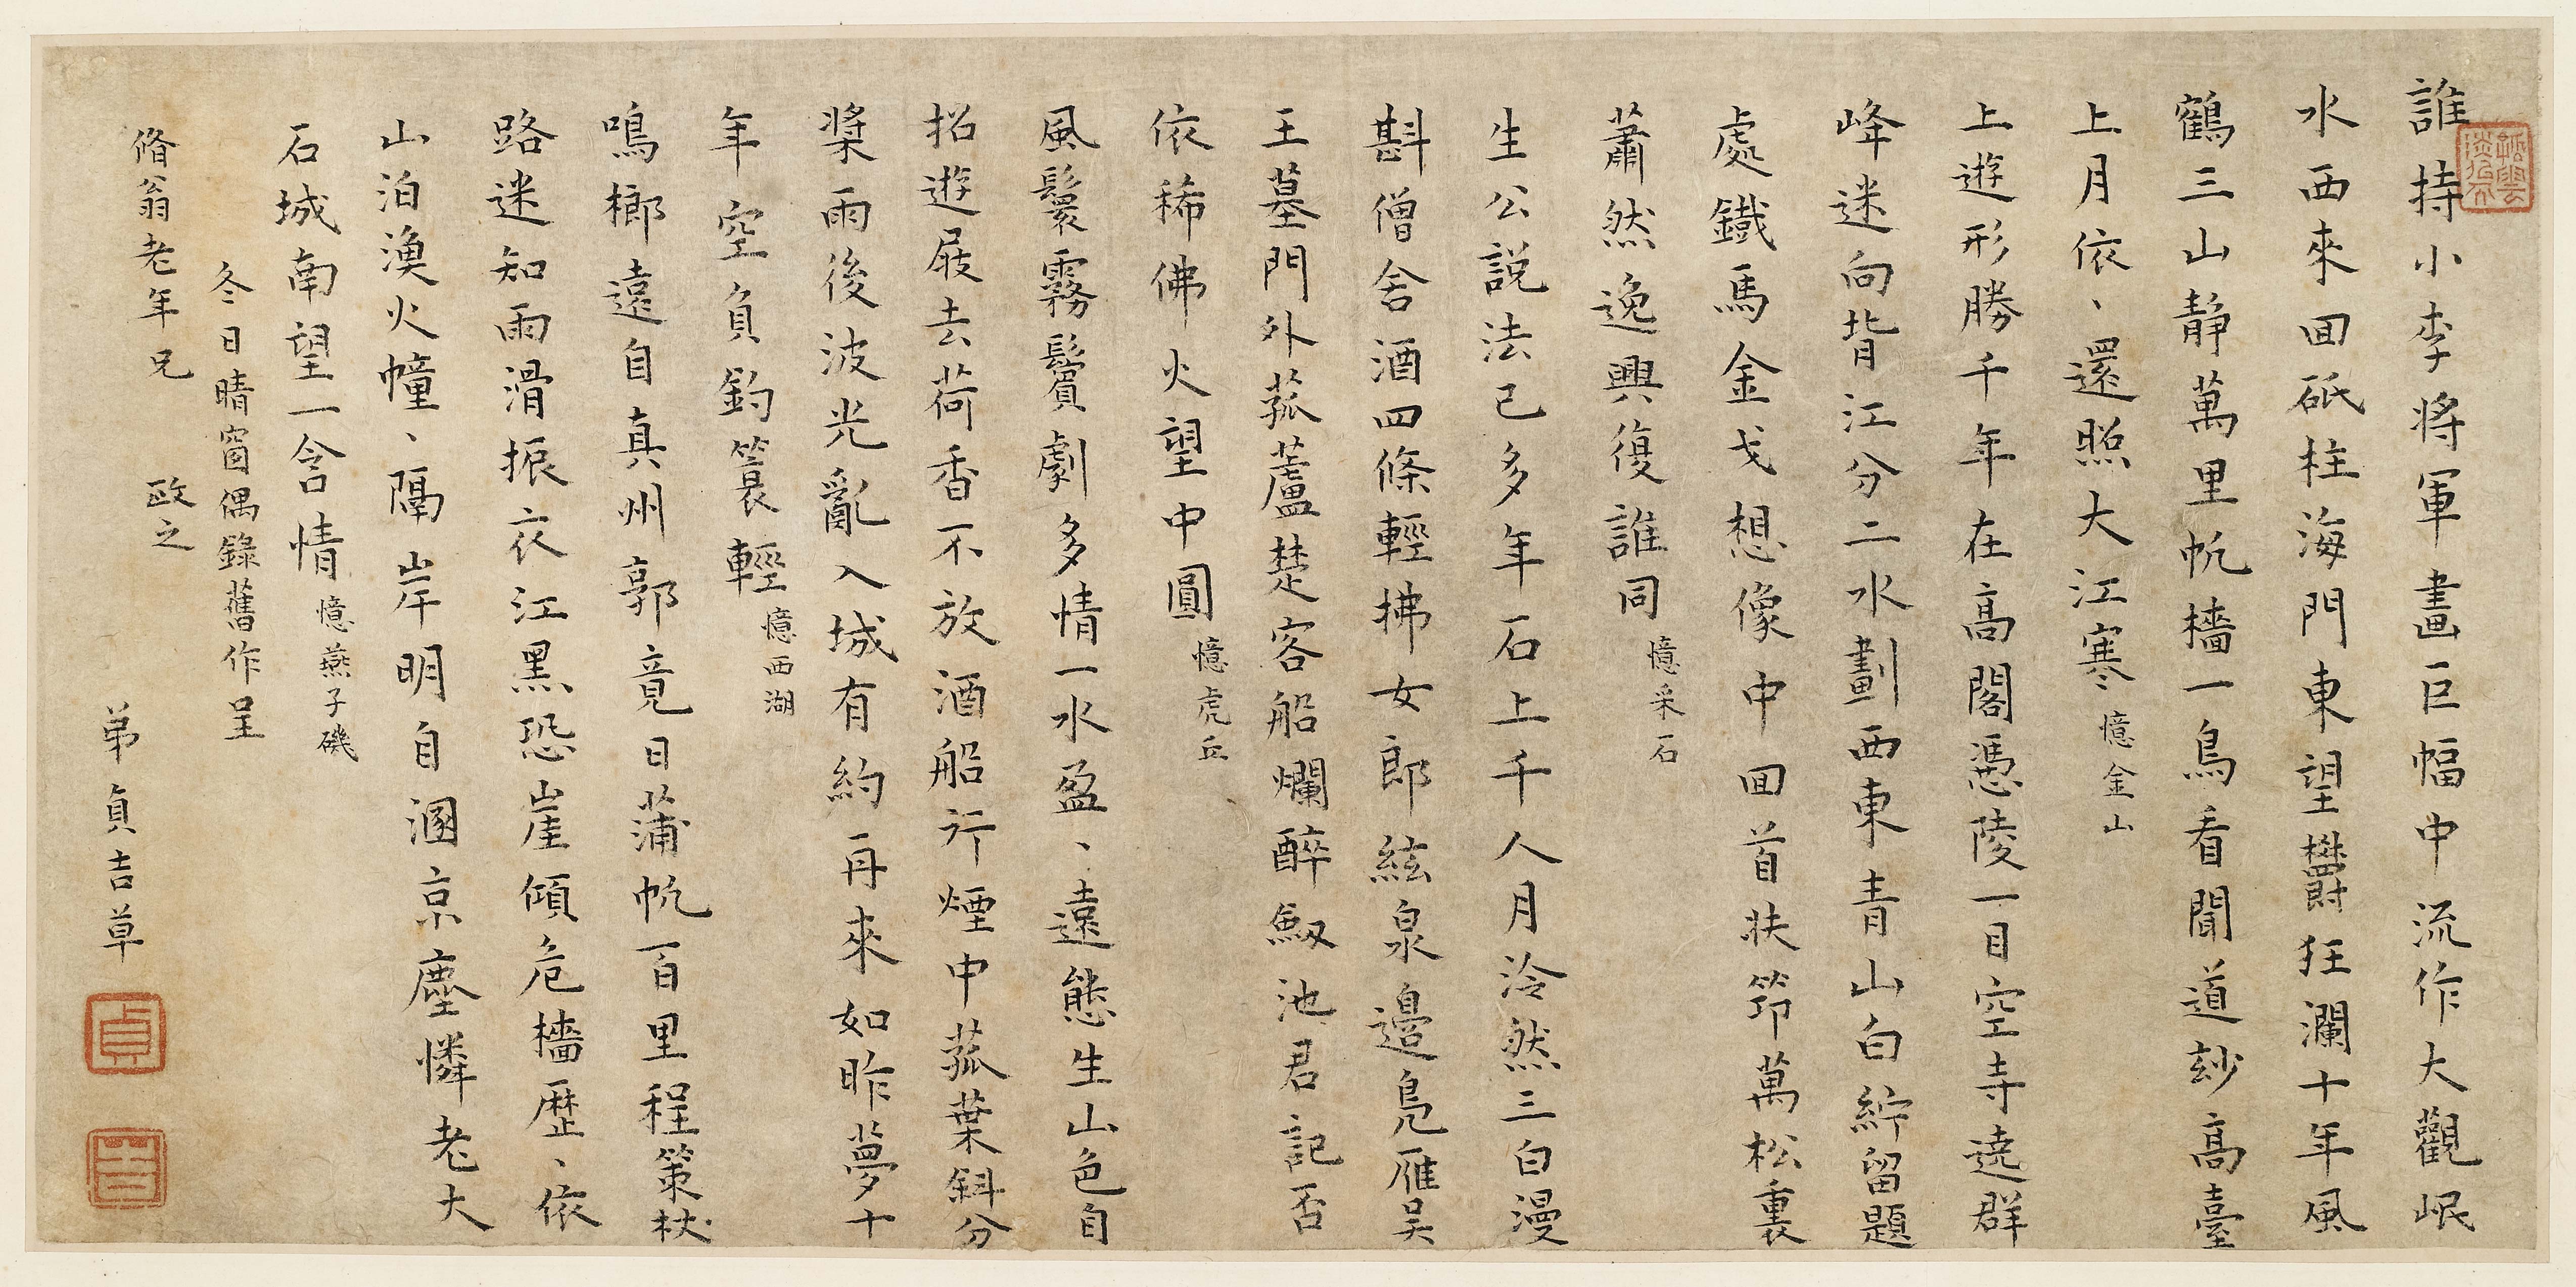 誰持小李將軍畫巨幅中流作大觀岷
水西來回砥柱海門東望欝狂瀾十年風
鶴三山靜萬里帆檣一鳥看聞道玅高臺
上月依、還照大江寒 憶金山
上遊形勝千年在高閣憑陵一目空寺遶群
峰迷向背江分二水劃西東青山白紵留題
處鐵馬金戈想像中回首扶笻萬松裏
蕭然逸興復誰同 憶采石
生公説法已多年石上千人月泠然三白漫
斟僧舍酒四條輕拂女郎絃泉邊鳧雁吴
王墓門外菰蘆楚客船爛醉劔池君記否
依稀佛火望中圓 憶虎丘
風鬟霧鬢劇多情一水盈、遠態生山色自
招遊屐去荷香不放酒船行煙中菰葉斜分
槳雨後波光亂入城有約再來如昨夢十
年空負釣簑輕 憶西湖
鳴榔遠自真州郭竟日蒲帆百里程策杖
路迷知雨滑振衣江黑恐崖傾危檣歷、依
山泊漁火幢、隔岸明自溷京塵憐老大
石城南望一含情 憶燕子磯
冬日晴窗偶錄舊作呈
脩翁老年兄 政之
弟貞吉草
貞
吉